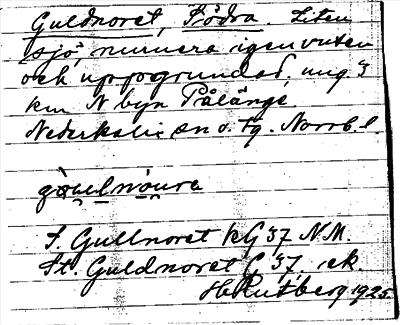 Guldnoret, Södra. Liten
sjö, numera igenvuten
och uppgrundad, ung 3
km N byn Pålänge
Nederkalix sn o. tg. Norrb. l.
S. Gullnoret kG 37 N.M.
St. Guldnoret G 37, ek.
HRutberg 1925